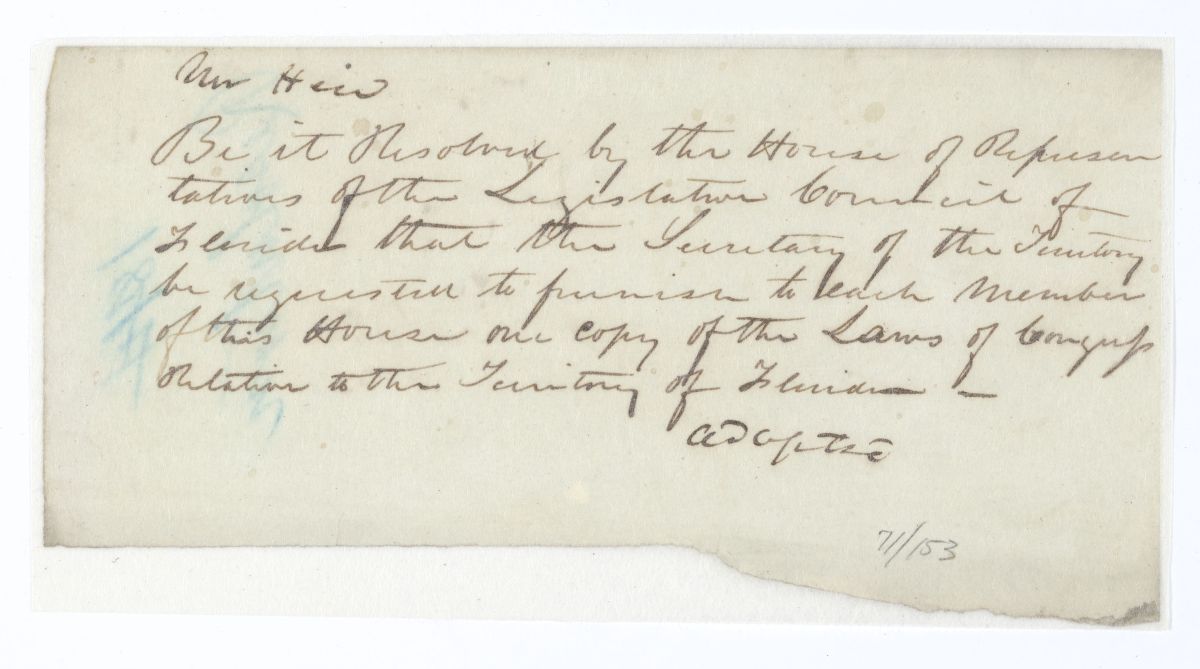 Mr Heir
Be it Resolved by the House of Represen
tatives of the Legislative Council of
Florida that the Secretary of the Territory
be requested to furnish to each Member
of this House one copy of the Laws of Congress
Relative to the Territory of Florida —
adopted
71/153